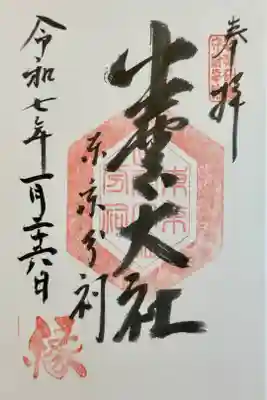 奉拝
出雲大社
東京分祠
令和七年一月二十六日
縁